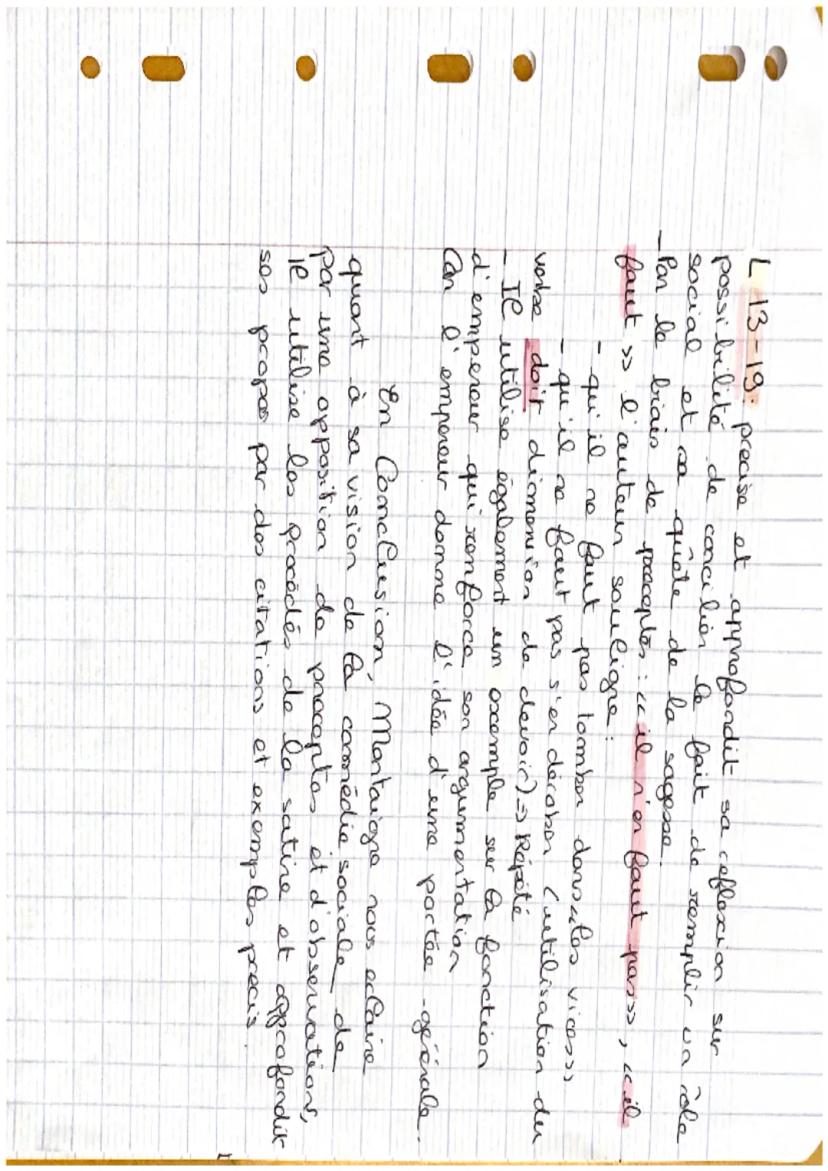 L 13-19: precise et approfondit sa réflexion sur
possibilité de concilier le fait de remplir un rôle
social et sa quête de la sagesse.
- Par le biais de preceptes : << il n'en faut pas >>, << il
faut >> l'auteur souligne :
- qu'il ne faut pas tomber dans << les vices >>
- qu'il ne faut pas s'en dérober (utilisation du
verbe doit dimension de devoir) => Répété
- Il utilise également un exemple sur la fonction
d'empereur qui renforce son argumentation
Car l'empereur donne l'idée d'une portée générale.
En Conclusion, Montaigne nous eclaire
quant à sa vision de la comédie sociale de
par une opposition de preceptes et d'observations,
Il utilise les procédés de la satire et approfondit
ses propos par des citations et exemples précis.